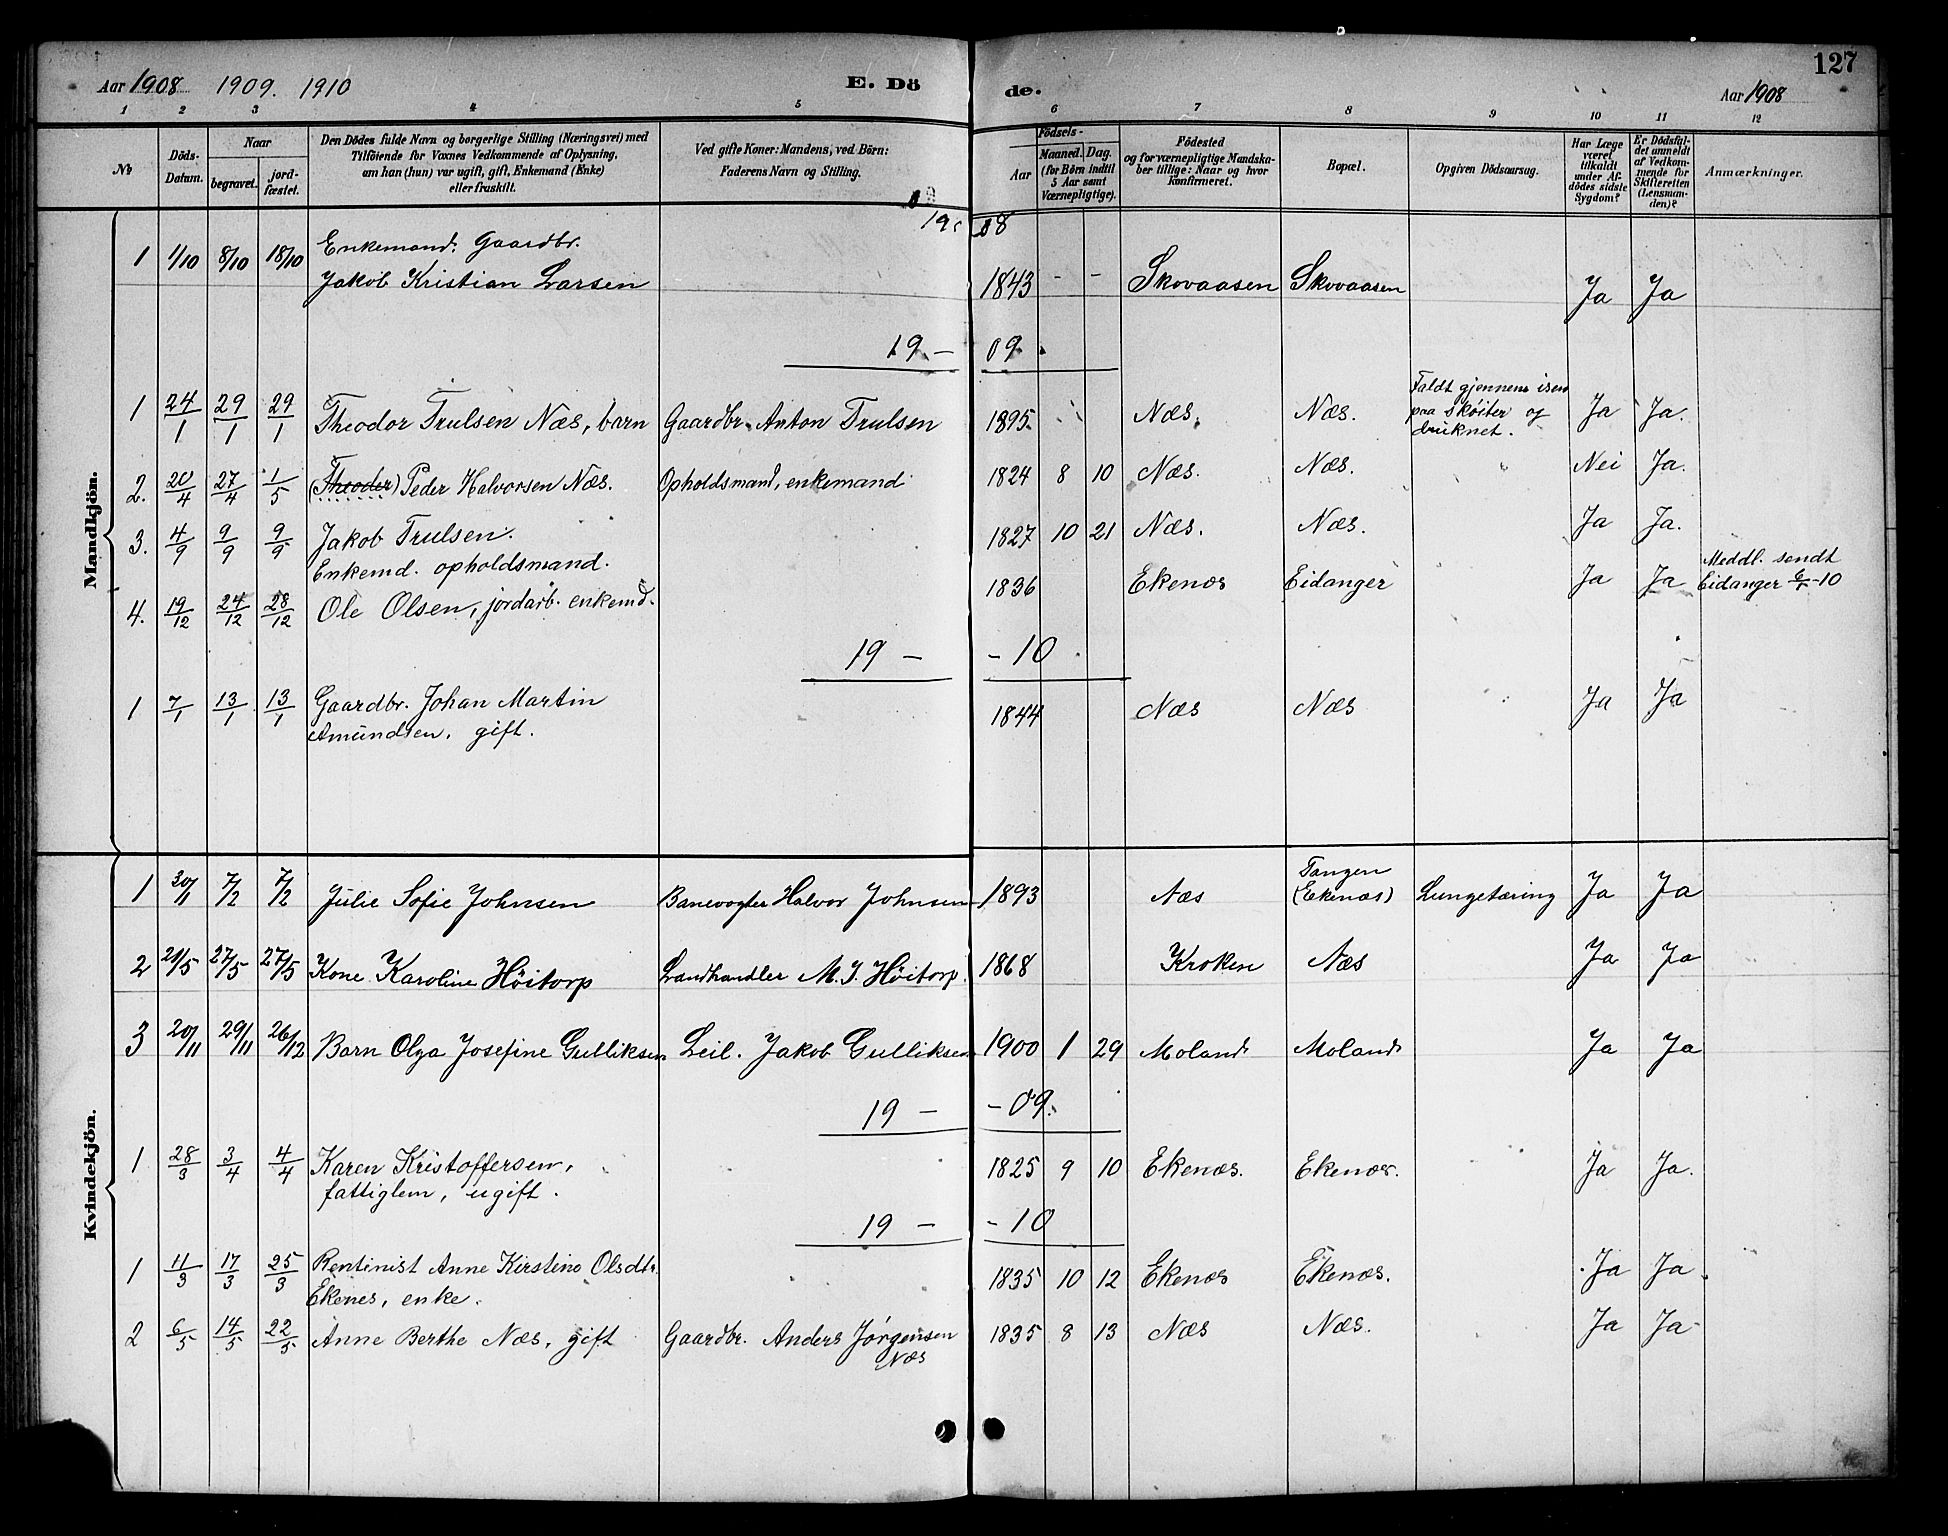 127
Aar 1908 1909. 1910 E. Dö de. Aar 1908
1 2 3 4 5 6 7 8 9 10 11 12
No
Döds-Datum.
Naar
begravet.
jord-fæstet.
Den Dödes fulde Navn og borgerlige Stilling (Næringsvei) med
Tilföiende for Voxnes Vedkommende af Oplysning,
om han (hun) var ugift, gift, Enkemand (Enke)
eller fraskilt.
Ved gifte Koner: Mandens, ved Börn:
Faderens Navn og Stilling.
Födsels-
Aar
Maaned. Dag.
(for Börn indtil
5 Aar samt
Værnepligtige).
Födested
og for værnepligtige Mandska-
ber tillige: Naar og hvor
konfirmeret.
Bopæl.
Opgiven Dödsaarsag.
Har Læge
været
tilkaldt
under Af-
dödes sidste
Sygdom?
Er Dödsfal-
det anmeldt
af Vedkom-
mende for
Skifteretten
(Lensman-
den)?
Anmærkninger.
Mandkjön.
1908
1 1/10 8/10 18/10 Enkemand. Gaardbr.
Jakob Kristian Larsen 1843 - - Skovaasen Skovaasen Ja Ja
19 - 09.
1 24/1 29/1 29/1 Theodor Trulsen Næs, barn Gaardbr. Anton Trulsen 1895 Næs. Næs. Faldt gjennem isen
paa skøiter og
druknet. Ja Ja.
2. 20/4 27/4 1/5 (Theoder) Peder Halvorsen Næs. Opholdsmand, enkemand 1824 8 10 Næs. Næs. Nei Ja.
3. 4/9 9/9 9/9 Jakob Trulsen.
Enkemd. opholdsmand. 1827 10 21 Næs. Næs. Ja Ja.
4. 19/12 24/12 28/12 Ole Olsen, jordarb. enkemd. 1836 Ekenæs Eidanger Ja Ja Meddl. sendt
Eidanger 6/1-10
19 - - 10
1 7/1 13/1 13/1 Gaardbr. Johan Martin
Amundsen, gift. 1844 Næs Næs Ja Ja
Kvindekjön.
1 30/1 7/2 7/2 Julie Sofie Johnsen Banevogter Halvor Johnsen 1893 Næs Tangen
(Ekenæs) Lungetæring Ja Ja
2 21/5 27/5 27/5 Kone Karoline Höitorp Landhandler M. J. Höitorp. 1868 Kroken Næs Ja Ja
3 20/11 29/11 26/12 Barn Olga Josefine Gulliksen Leil. Jakob Gulliksen 1900 1 29 Moland Moland Ja Ja
19 - - 09.
1 28/3 3/4 4/4 Karen Kristoffersen,
fattiglem, ugift. 1825 9 10 Ekenæs. Ekenæs. Ja Ja.
19 - - 10
1 11/3 17/3 25/3 Rentinist Anne Kirstine Olsdtr.
Ekenes, enke. 1835 10 12 Ekenæs Ekenæs. Ja Ja
2 6/5 14/5 22/5 Anne Berthe Næs, gift Gaardbr. Anders Jørgensen
Næs 1835 8 13 Næs Næs. Ja Ja